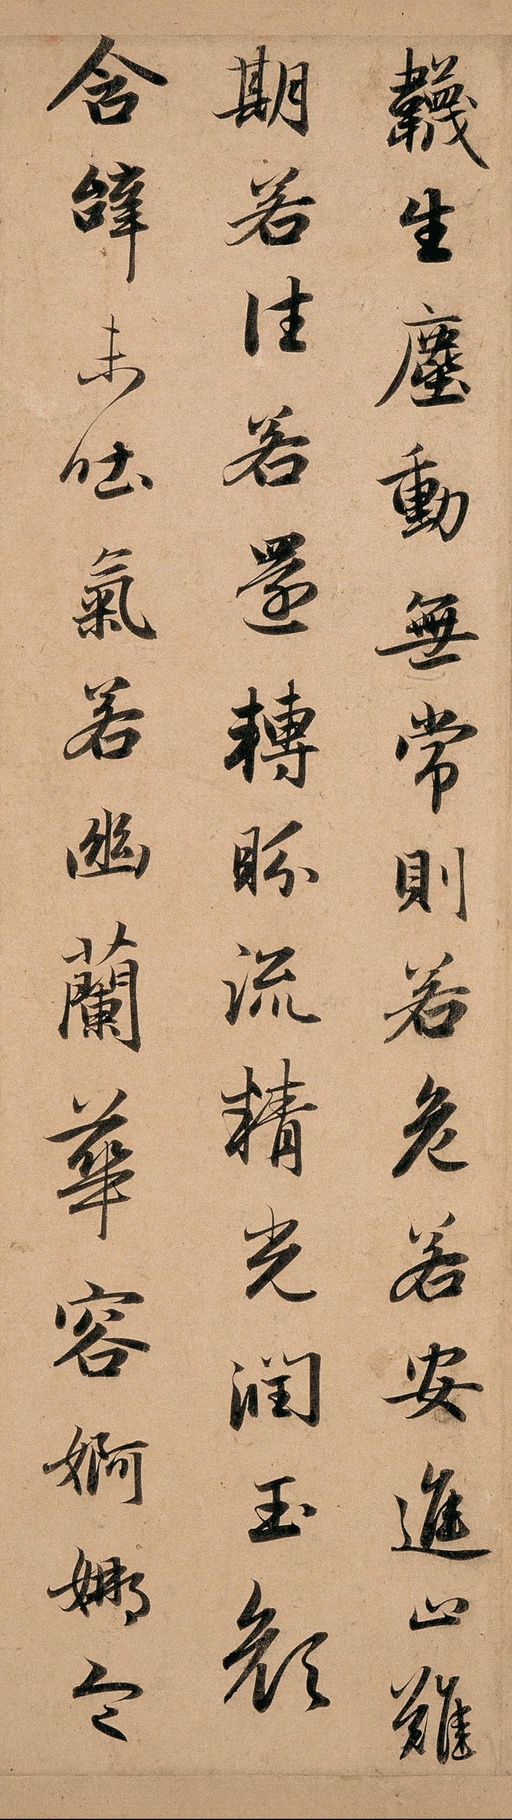 韈生塵動無常則若危若安進止難
期若往若還轉眄流精光潤玉顏
含辭未吐氣若幽蘭華容婀娜令